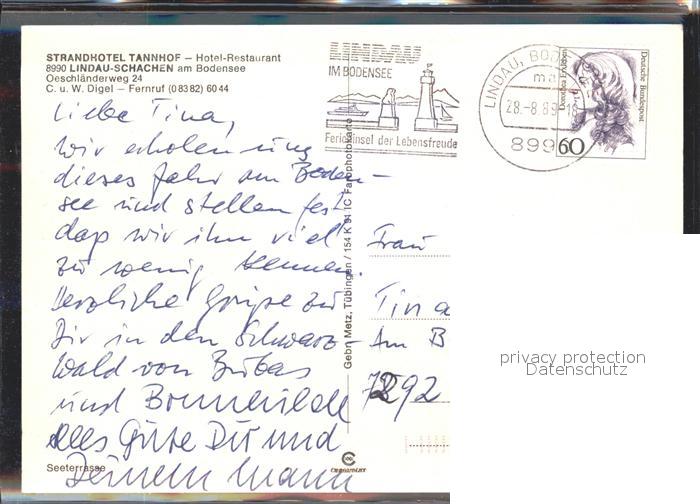 STRANDHOTEL TANNHOF – Hotel-Restaurant
8990 LINDAU-SCHACHEN am Bodensee
Oeschländerweg 24
C. u. W. Digel – Fernruf (0 83 82) 60 44
LINDAU
IM BODENSEE
Ferieninsel der Lebensfreude
LINDAU, BOD
ma
28.-8.89
899
Dorothea Erxleben
Deutsche Bundespost
60
Liebe Tina,
wir erholen uns
dieses Jahr am Boden-
see und stellen fest
daß wir ihn viel
zu wenig kennen.
Herzliche Grüße zu
Dir in den Schwarz-
wald von
und Brunhilde
Alles Gute Dir und
Deinem Mann
Gebr. Metz, Tübingen / 154 K 91 IC Farbphotokarte
Frau
Tina
Am B
7292
privacy protection
Datenschutz
Seeterrasse